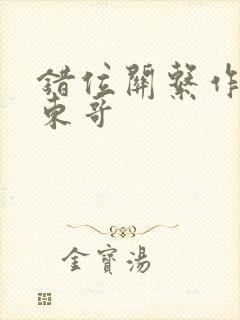 錯位關繫作
東哥
金寶湯